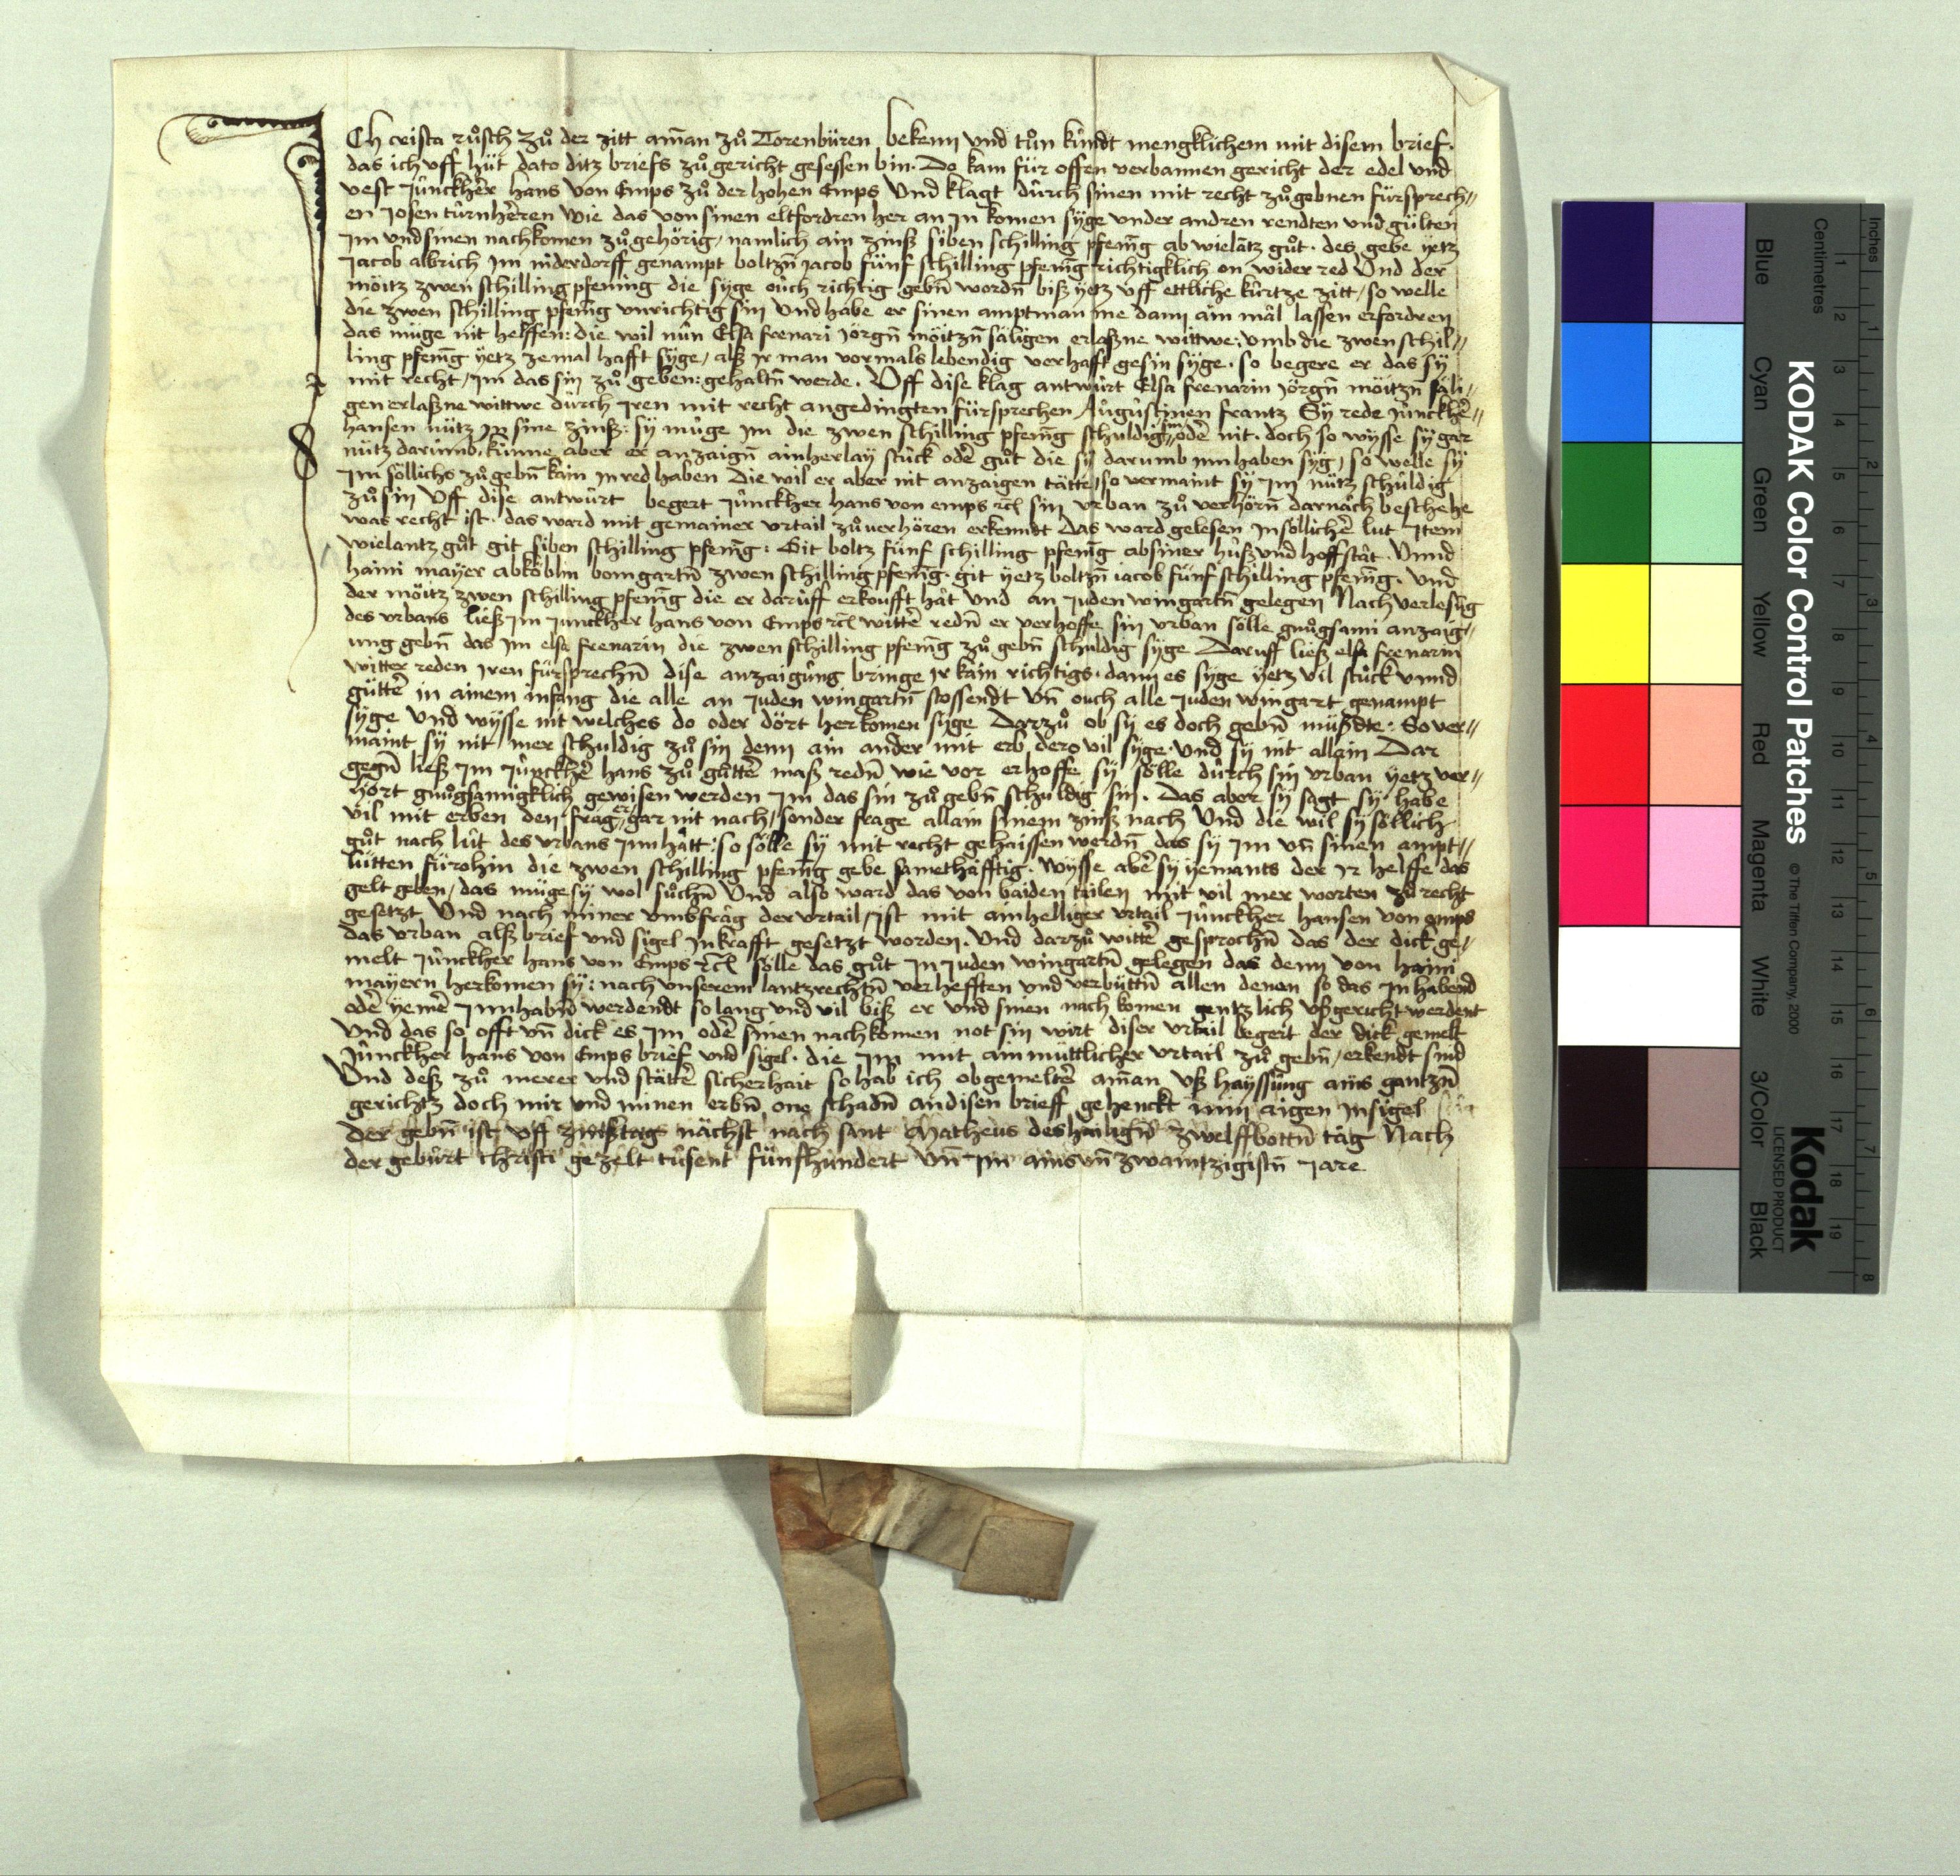 Ich crista růsch zů der zitt am̄an zů Torenbüren bekenn vnd tůn kündt mengklichem mit disem brief.
das ich vff hüt dato ditz briefs zů gericht gesessen bin. Do kam für offen verbannen gericht der edel vnd
vest Junckher hans von Emps zů der hohen Emps Vnd klagt durch sinen mit recht zůgebnen fürsprech„
en Josen türnheren wie das von sinen eltfordren her an In komen syge vnder andren rendten vnd gülten
Im vnd sinen nachkomen zů gehörig, namlich ain zinß siben schilling pfenīg ab wielātz gůt. des gebe yetz
Jacob albrich Im niderdorff genampt boltzn̄ Jacob fünf schilling pfenīg richtigklich on wider red Vnd der
möitz zwen schilling pfening die syge ouch richtig gebn̄ wordn̄ biß yetz vff ettliche kürtze zitt, so welle
die zwen schilling pfenīg vnrichtig sin Vnd habe er sinen amptman me dann ain mal lassen erfordren
das müge nit helffen: die wil nun Elsa frenari Jörgn̄ möitzn̄ säligen erlaßne wittwe: vmb die zwen schil„
ling pfenīg yetz zemal hafft syge, alß Ir man vormals lebendig verhafft gesin syge. so begere er das sy
mit recht, Im das sin zů geben: gehaltn̄ werde. Vff dise klag antwürt Elsa frenarin Jörgn̄ möitzn̄ säli„
gen erlaßne wittwe durch Iren mit recht angedingten fürsprechen Augustinen frantz Sy rede Junckhē„
hansen nütz In sine zinß: sy müge Im die zwen schilling pfenīg schuldig sin odē nit. doch so wysse sy gar
nütz darumb, künne aber er anzaign̄ ainherlay stuck odē gůt die sy darumb Inn haben syg, so welle sy
Im söllichs zů gebn̄ kain In red haben Die wil er aber nit anzaigen tätte, so vermaint sy Im nütz schuldig
zů sin Vff dise antwürt begert Junckher hans von emps rc̄ sin vrban zů verhörn̄ darnäch beschehe
was recht ist. das ward mit gemainer vrtail zů verhören erkenndt Das ward gelesen In söllichē lut Item
wielantz gůt git siben schilling pfenīg: Git boltz fünf schilling pfenīg ab siner huß vnd hoffstät. Vnnd
haini mayer ab köblin bomgartn̄ zwen schilling pfenīg. git yetz boltzn̄ iacob fünf schilling pfenīg. vnd
der möitz zwen schilling pfenīg die er daruff erkoufft hät vnd an Juden wingartn̄ gelegen Nach verlesūg
des vrbans ließ Im Junckher hans von Emps rc̄ wittē redn̄ er verhoffe sin vrban sölle gnůgsami anzaig„
ung gebn̄ das Im elsa frenarin die zwen schilling pfenīg zů gebn̄ schuldig syge Daruff ließ elsa frenarin
witter reden Iren fürsprechn̄ dise anzaigung bringe Ir kain richtigs. dann es syge yetz vil stuck vnnd
güttē in ainem infang die alle an Juden wingartn̄ stossendt vn̄ ouch alle Juden wingart genampt
syge Vnd wysse nit welches do oder dört herkomen syge Darzů ob sy es doch gebn̄ müßdte: So ver„
maint sy nit mer schuldig zů sin denn ain ander mit erb, dero vil syge. vnd sy nit allain Dar
gegn̄ ließ Im Junckhē hans zů güttē maß redn̄ wie vor erhoffe sy sölle durch sin vrban yetz ver„
hört gnůgsamigklich gewisen werden Im das sin zů gebn̄ schuldig sin. Das aber sy sagt sy habe
vil mit erben den frag er gar nit nach, sonder frage allain sinem zinß nach Vnd die wil sy söllich
gůt nach lut des vrbans Innhätt: so sölle sy mit recht gehaissen werdn̄ das sy Im vn̄ sinen ampt„
lütten fürohin die zwen schilling pfenīg gebe samethäfftig. Wysse abē sy yemants der Ir helffe das
gelt geben, das müge sy wol sůchn̄ Vnd also ward das von baiden tailen mit vil mer worten zů recht
gesetzt Vnd nach miner vmbfrag der vrtail, Ist mit ainhelliger vrtail Junckher hansen von emps
das vrban alß brief vnd sigel In krafft gesetzt worden. Vnd darzů wittē gesprochn̄ das der dick ge„
melt Junckher hans von Emps rc̄ sölle das gůt In Juden wingartn̄ gelegen das denn von haini
mayern herkomen sy: nach vnserem lantzrechtn̄ verhefften vnd verbüttn̄ allen denen so das In habend
odē yemē Innhabn̄d werdendt so lang vnd vil biß er vnd sinen nach komen gentzlich vßgericht werdent
Vnd das so offt vn̄ dick es Im odē sinen nachkomen not sin wirt diser vrtail begert der dick gemelt
Junckher hans von Emps brief vnd sigel. die Im mit ainmüttlicher vrtail zů gebn̄, erkendt sind
Vnd deß zů merer vnd stättē sicherhait so hab ich obgemeltē am̄an vß hayssung ains gantzn̄
gerichtz doch mir vnd minen erbn̄ one schadn̄ an disen brieff gehenckt min aigen Insigel
Der gebn̄ ist vff zinstag nächst nach sant Matheus des hailign̄ zwelffbottn̄ tag Nach
der gebürt christi gezelt tusent fünfhundert vn̄ Im ains vn̄ zwaintzigistn̄ Jare
KODAK Color Control Patches
© The Tiffen Company, 2000
Kodak
LICENSED PRODUCT
Blue
Cyan
Green
Yellow
Red
Magenta
White
3/Color
Black
Centimetres
Inches
1 2 3 4 5 6 7 8 9 10 11 12 13 14 15 16 17 18 19
1 2 3 4 5 6 7 8